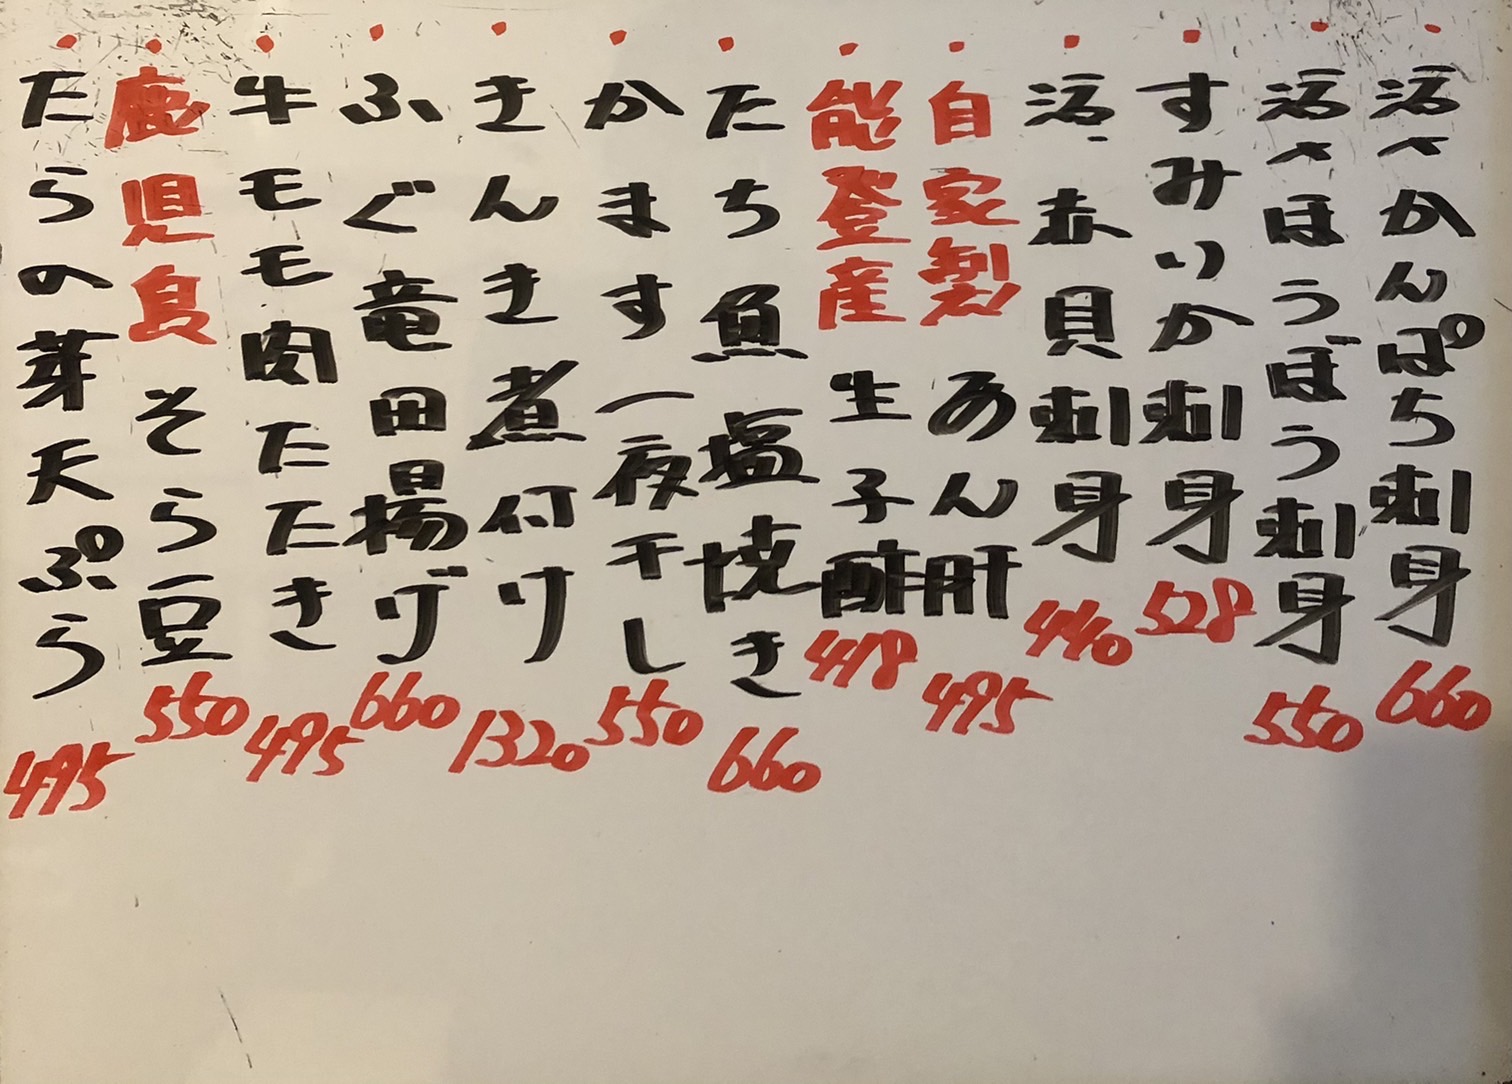 活〆かんぱち刺身 660
活〆ほうぼう刺身 550
すみいか刺身 528
活〆赤貝刺身 440
自家製あん肝 495
能登産生子酢 418
たち魚塩焼き 660
かます一夜干し 550
きんき煮付け 1320
ふぐ竜田揚げ 660
牛モモ肉たたき 495
鹿児島そら豆 550
たらの芽天ぷら 495